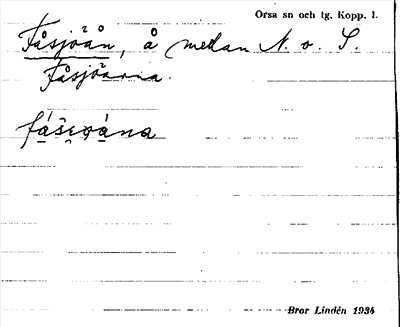 Orsa sn och tg. Kopp. l.
Fåsjöån, å mellan N. o. S.
Fåsjöarna.
Bror Lindén 1934